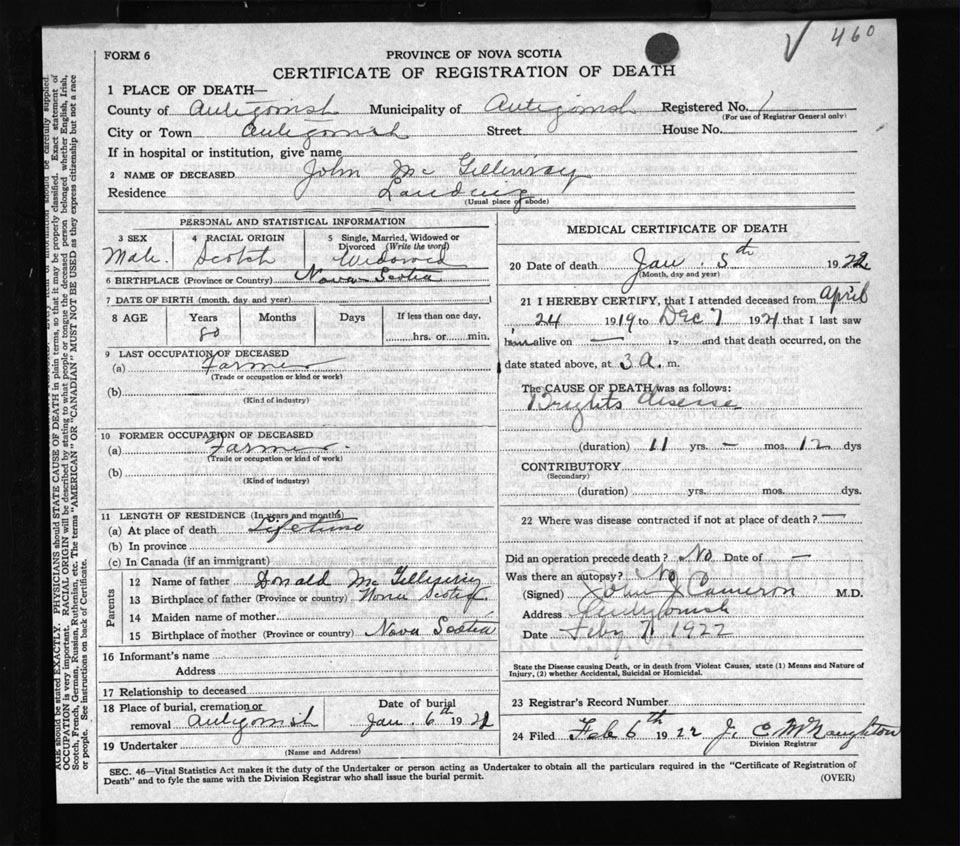 √ 460
FORM 6
PROVINCE OF NOVA SCOTIA
CERTIFICATE OF REGISTRATION OF DEATH
1 PLACE OF DEATH—
County of Antigonish Municipality of Antigonish Registered No. 1
(For use of Registrar General only)
City or Town Antigonish Street House No.
If in hospital or institution, give name
2 NAME OF DECEASED John Mc Gillivray
Residence Landing
(Usual place of abode)
PERSONAL AND STATISTICAL INFORMATION
3 SEX 4 RACIAL ORIGIN 5 Single, Married, Widowed or Divorced (Write the word)
Male. Scotch Widowed
6 BIRTHPLACE (Province or Country) Nova Scotia
7 DATE OF BIRTH (month, day and year)
8 AGE Years Months Days If less than one day,
80 hrs. or min.
9 LAST OCCUPATION OF DECEASED
(a) Farmer
(Trade or occupation or kind or work)
(b)
(Kind of industry)
10 FORMER OCCUPATION OF DECEASED
(a) Farmer
(Trade or occupation or kind of work)
(b)
(Kind of industry)
11 LENGTH OF RESIDENCE (In years and months)
(a) At place of death Lifetime
(b) In province
(c) In Canada (if an immigrant)
Parents
12 Name of father Donald Mc Gillivray
13 Birthplace of father (Province or country) Nova Scotia
14 Maiden name of mother
15 Birthplace of mother (Province or country) Nova Scotia
16 Informant's name
Address
17 Relationship to deceased
18 Place of burial, cremation or removal Antigonish Date of burial Jan. 6th 1921
19 Undertaker
(Name and Address)
MEDICAL CERTIFICATE OF DEATH
20 Date of death Jan. 5th 1922
(Month, day and year)
21 I HEREBY CERTIFY, that I attended deceased from April
24 1919 to Dec 7 1921 that I last saw
him alive on — 19 and that death occurred, on the
date stated above, at 3 a. m.
The CAUSE OF DEATH was as follows:
Brights disease
(duration) 11 yrs. – mos. 12 dys
CONTRIBUTORY
(Secondary)
(duration) yrs. mos. dys.
22 Where was disease contracted if not at place of death? —
Did an operation precede death? No Date of —
Was there an autopsy? No
(Signed) John J Cameron M.D.
Address Antigonish
Date Feby 7 1922
State the Disease causing Death, or in death from Violent Causes, state (1) Means and Nature of
Injury, (2) whether Accidental, Suicidal or Homicidal.
23 Registrar's Record Number
24 Filed Feb 6th 1922 J. C. McNaughton
Division Registrar
SEC. 46—Vital Statistics Act makes it the duty of the Undertaker or person acting as Undertaker to obtain all the particulars required in the "Certificate of Registration of
Death" and to fyle the same with the Division Registrar who shall issue the burial permit.
(OVER)
AGE should be stated EXACTLY. PHYSICIANS should STATE CAUSE OF DEATH in plain terms, so that it may be properly classified. Exact statement of
OCCUPATION is very important. RACIAL ORIGIN will be described by stating to what people or tongue the deceased person belonged whether English, Irish,
Scotch, French, German, Russian, Ruthenian, etc. The terms "AMERICAN" OR "CANADIAN" MUST NOT BE USED as they express citizenship but not a race
or people. See instructions on back of Certificate.